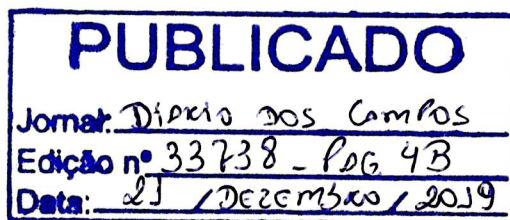 PUBLICADO
Jornal: Diário dos Campos
Edição nº 33738 - PAG 4B
Data: 21 / DEZEMBRO / 2019